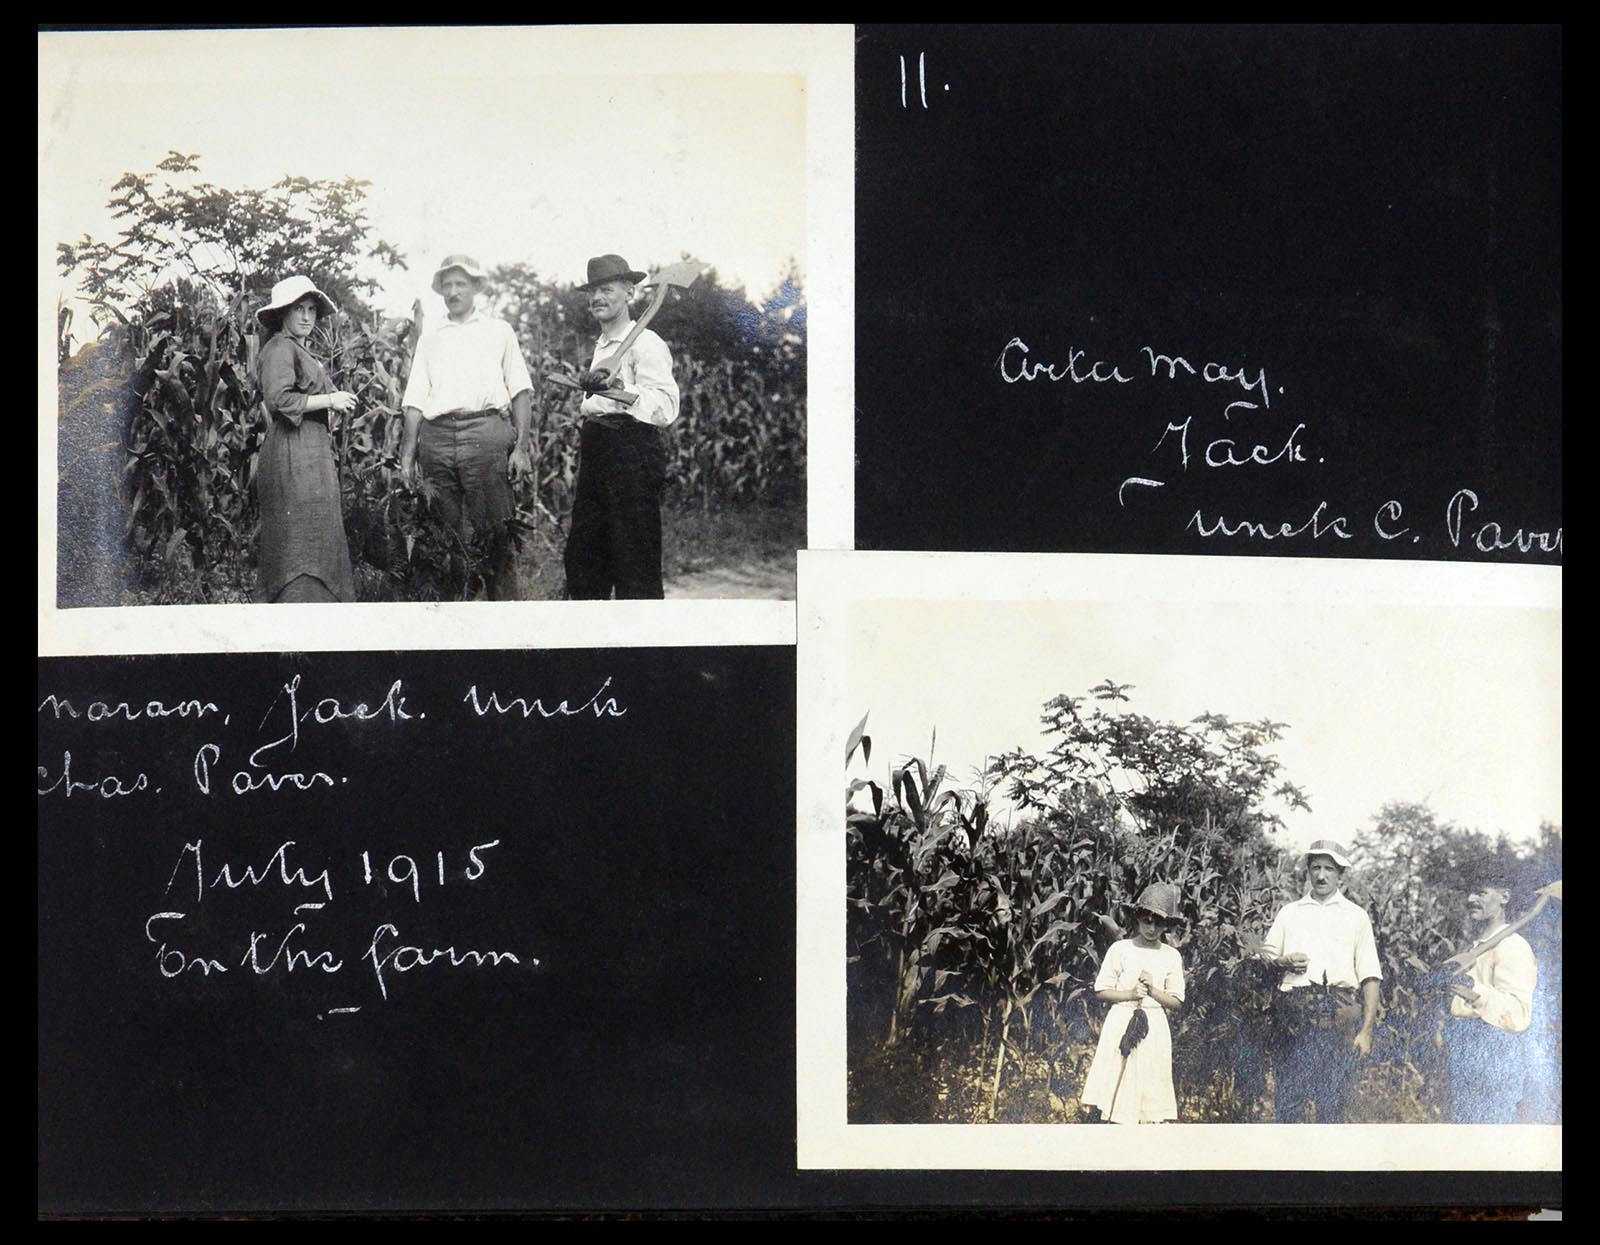 11.
Arta May.
Jack.
Uncle C. Paver
Jack. Uncle
Chas. Paver.
July 1915
On the farm.